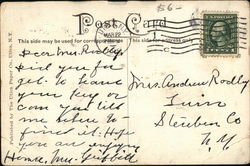 Post Card
MAR 22
This side may be used for correspondence
Dear Mrs. Rodly,
Did you for
get to leave
your key or
can you tell
me where to
find it. Hope
you are enjoying
Home, Mrs.
Mrs. Andrew Rodly
Steuben Co
N.Y.
Published by The Dixon Paper Co., Utica, N.Y.